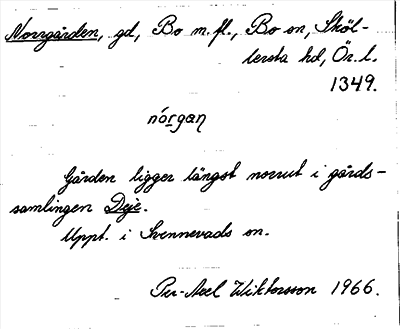 Norrgården, gd, Bo m.fl., Bo sn, Sköl-
lersta hd, Ör. l.
1349.
nórgaŋ
Gården ligger längst norrut i gårds-
samlingen Deje.
Uppt. i Svennevads sn.
Per-Axel Wiktorsson 1966.